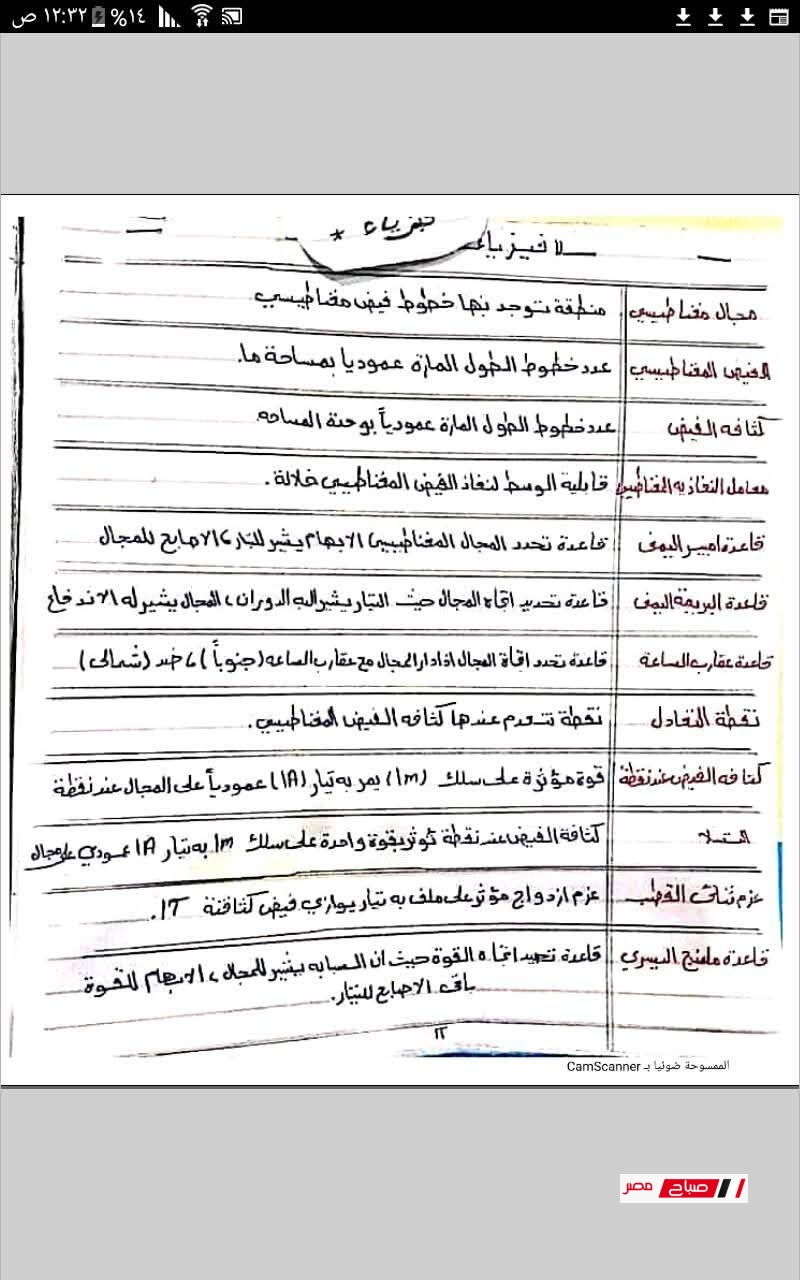 ١٢:٣٢ ص ١٤%
فيزياء *
لا فيزياء
مجال مغناطيسي | منطقة تتوجد بها خطوط فيض مغناطيسي
الفيض المغناطيسي | عدد خطوط الطول المارة عموديا بمساحة ما.
كثافه الفيض | عدد خطوط الطول المارة عمودياً بوحدة المساحه
معامل النفاذيه المغناطيسي | قابلية الوسط لنفاذ الفيض المغناطيسي خلالة.
قاعدة امبير اليمنى | قاعدة تحدد المجال المغناطيسي) الابهام يشير للتيار، الاصابع للمجال
قاعدة البريمة اليمنى | قاعدة تحديد اتجاه المجال حيث التيار يشير اليه الدوران، المجال يشير له الاندفاع
قاعدة عقارب الساعة | قاعدة تحدد اتجاة المجال اذا دار المجال مع عقارب الساعه (جنوباً)، ضد (شمالى)
نقطة التعادل | نقطة تنعدم عندها كثافه الفيض المغناطيسي.
كثافه الفيض عند نقطة | قوة مؤثرة على سلك (1m) يمر به تيار (1A) عمودياً على المجال عند نقطة
التسلا | كثافة الفيض عند نقطة تؤثر بقوة واحدة على سلك 1m به تيار 1A عمودي على مجال
عزم ثنائى القطب | عزم ازدواج مؤثر على ملف به تيار يوازي فيض كثافتة 1T.
قاعدة فلمنج اليسري | قاعدة تحديد اتجاه القوة حيث ان السبابه يشير للمجال، الابهام للقوة
باقى الاصابع للتيار.
١٢
الممسوحة ضوئيا بـ CamScanner
صباح مصر